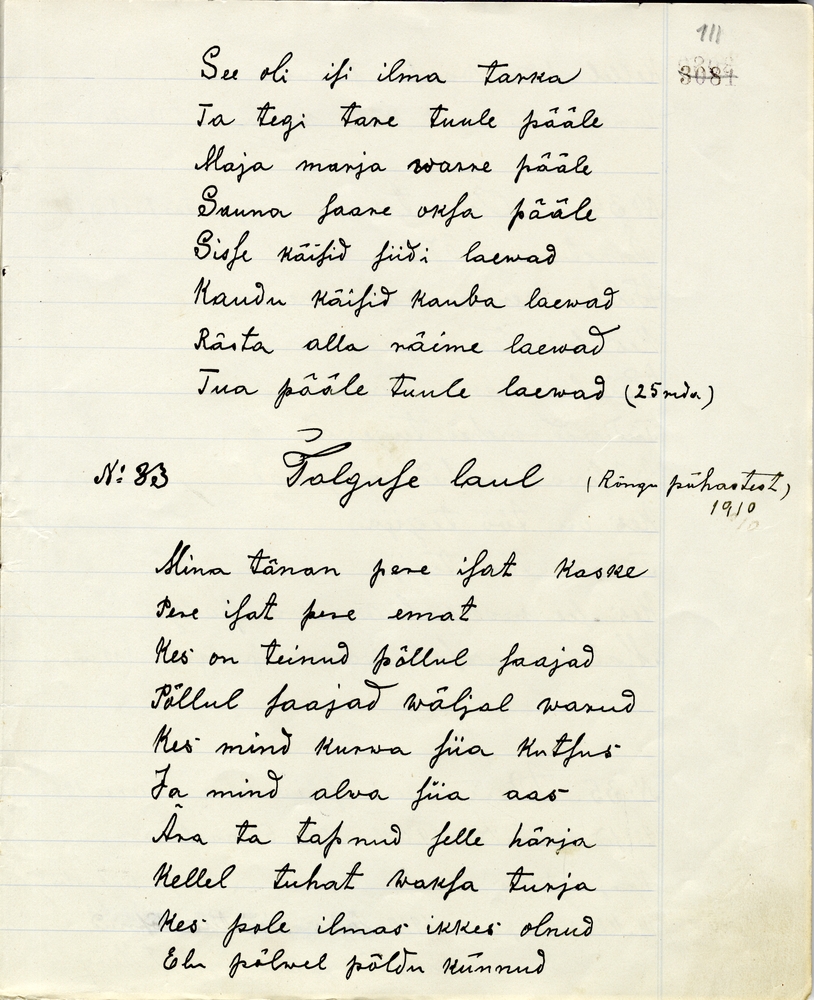 111
3081
See oli isi ilma tarka
Ta tegi tare tuule pääle
Maja marja warre pääle
Sauna saare oksa pääle
Sisse käisid siidi laewad
Kaudu käisid kauba laewad
Rästa alla räime laewad
Tua pääle tuule laewad (25 rida)
No: 83 Talguse laul (Rõngu pühastest)
1910
Mina tänan pere isat kaske
Pere isat pere emat
Kes on teinud põllul saajad
Põllul saajad wäljal warud
Kes mind kurwa siia kutsus
Ja mind alwa siia aas
Ära ta tapnud selle härja
Kellel tuhat waksa turja
Kes pole ilmas ikkes olnud
Elu põlwel põldu künnud